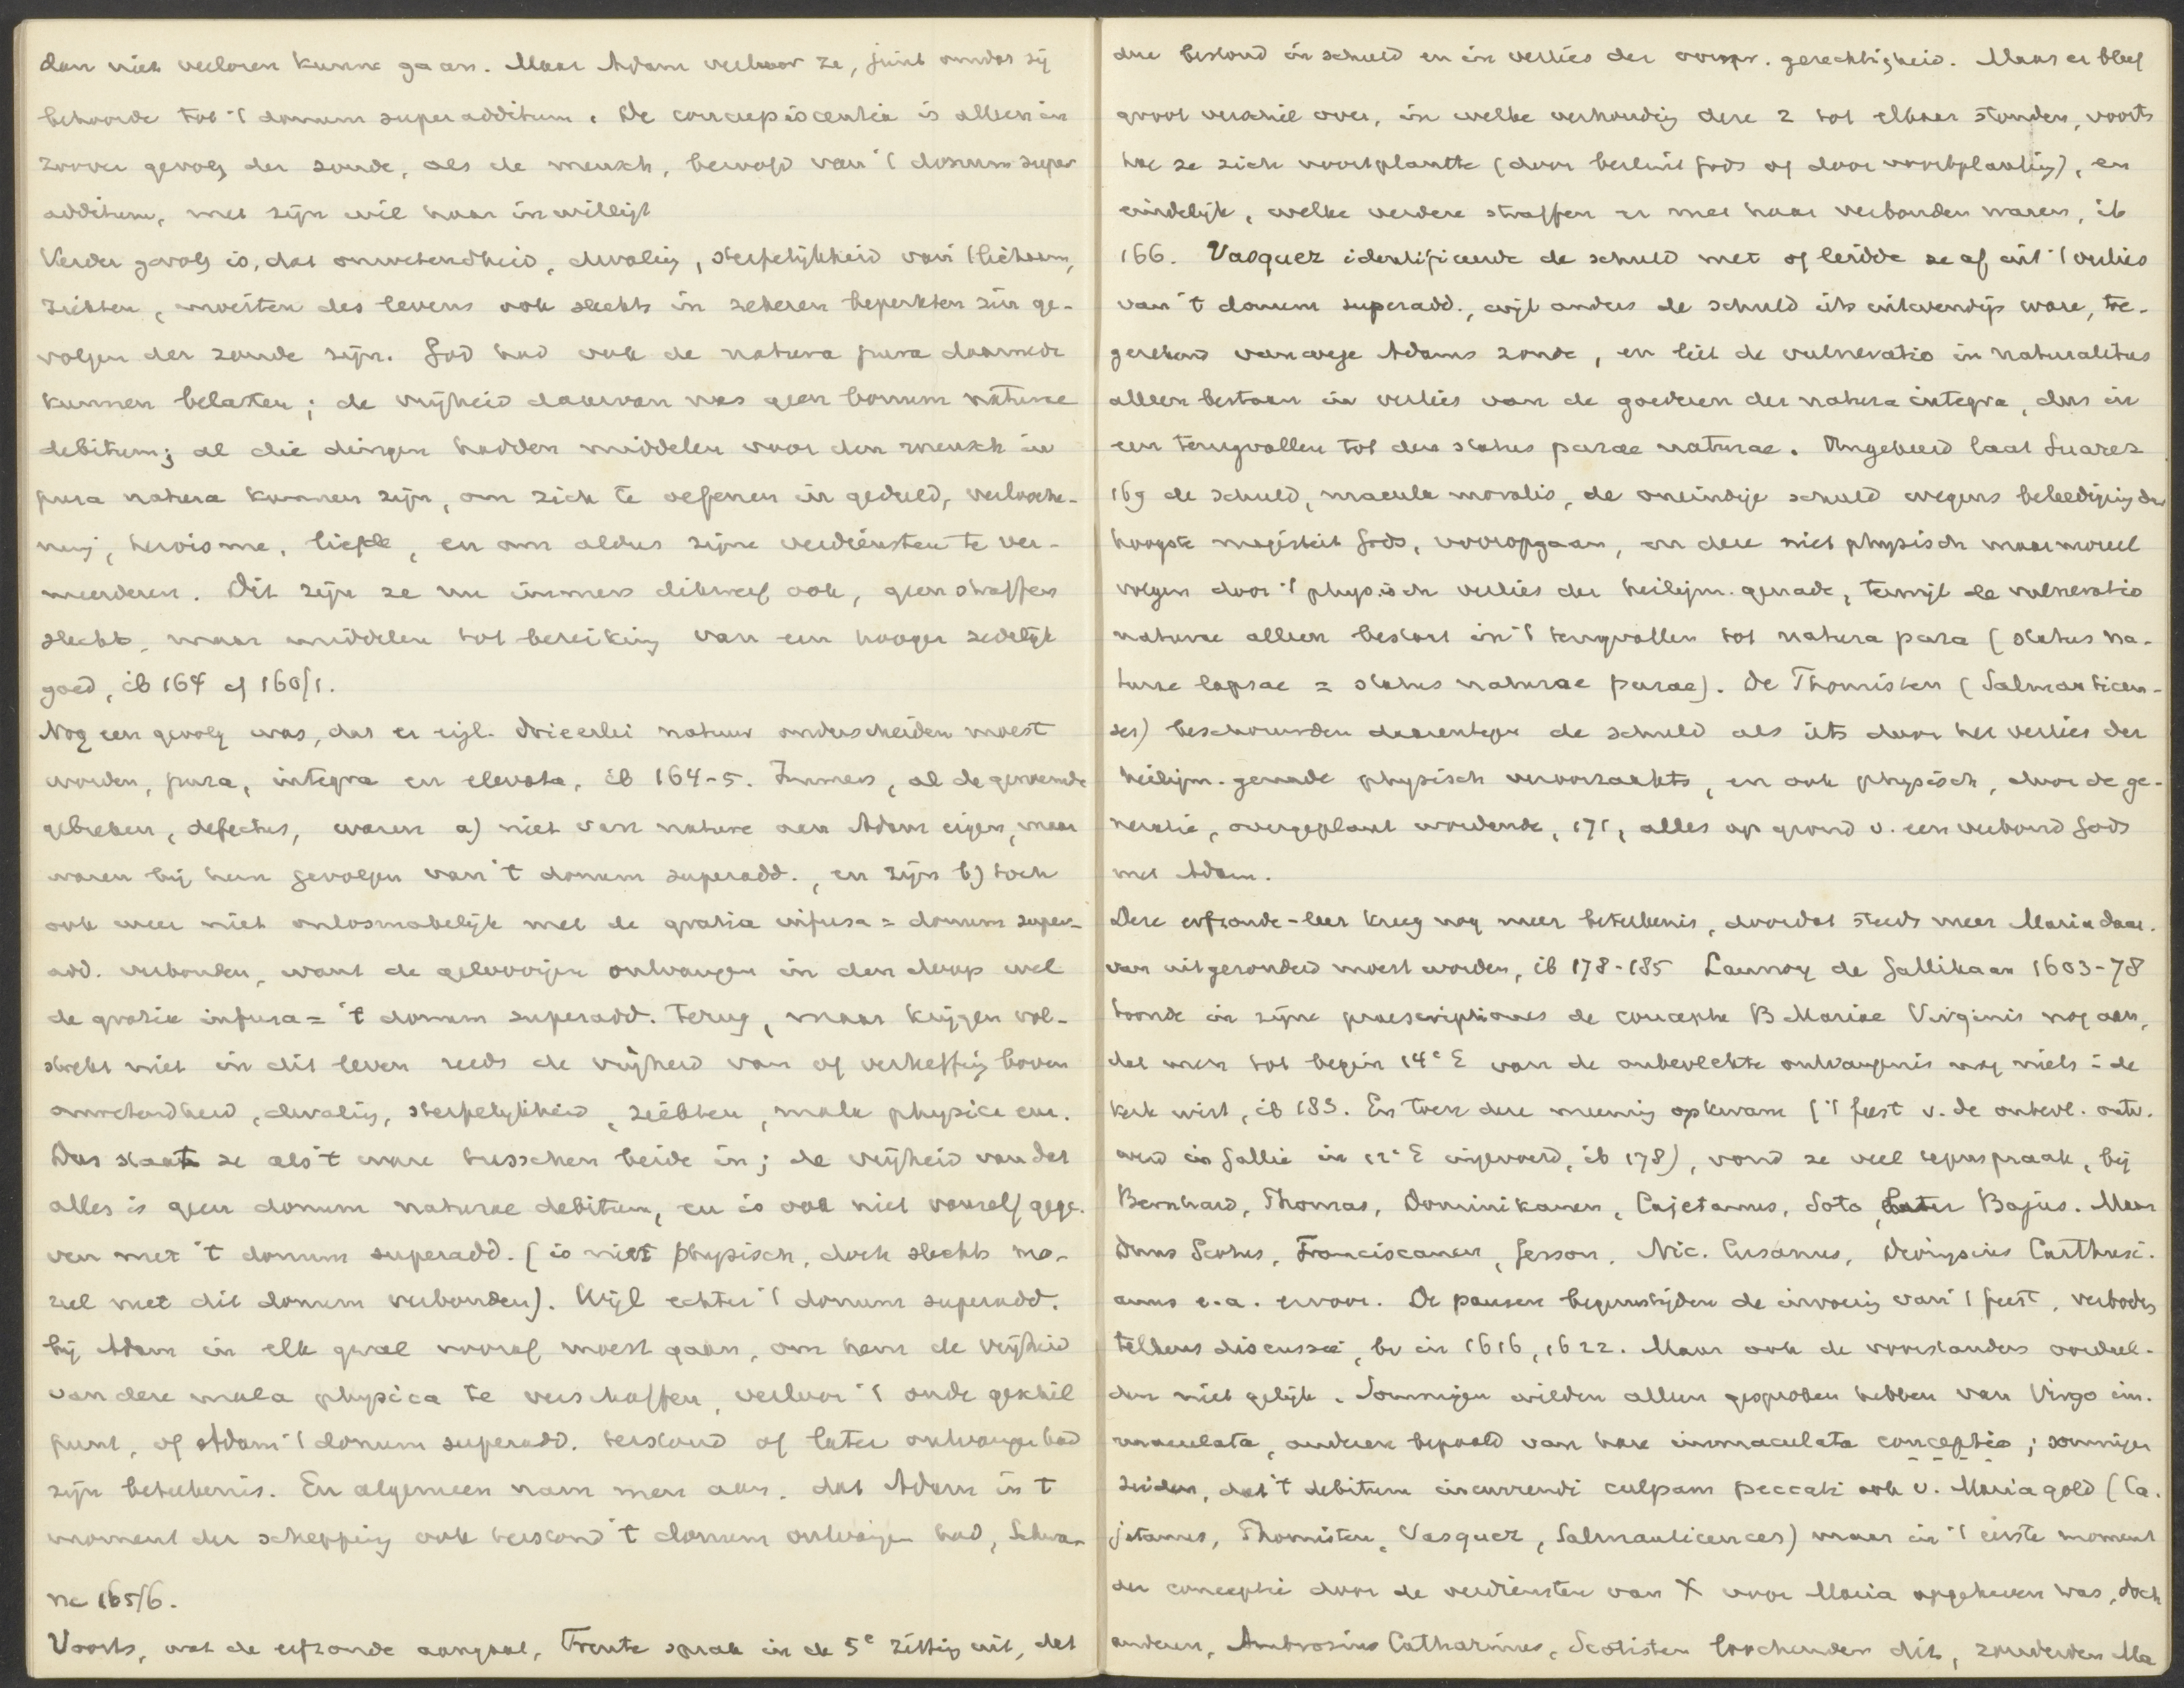 dan niet verloren kunne gaan. Maar Adam verloor ze, juist omdat zij
behoorde tot 't donum superadditum. De concupiscentia is alleen in
zoover gevolg der zonde, als de mensch, beroofd van 't donum super
additum, met zijn wil haar inwilligt
Verder gevolg is, dat onwetendheid, dwaling, sterfelijkheid van 't lichaam,
ziekten, moeiten des levens ook slechts in zekeren beperkten zin ge-
volgen der zonde zijn. God had ook de natura pura daarmede
kunnen belasten; de vrijheid daarvan was geen bonum naturae
debitum; al die dingen hadden middelen voor den mensch in
pura natura kunnen zijn, om zich te oefenen in geduld, verlooche-
ning, heroisme, liefde, en om aldus zijne verdiensten te ver-
meerderen. Dit zijn ze nu immers dikwerf ook, geen straffen
slechts, maar middelen tot bereiking van een hooger zedelijk
goed, ib 164 cf 160/1.
Nog een gevolg was, dat er eigl. drieerlei natuur onderscheiden moest
worden, pura, integra en elevata, ib 164-5. Immers, al de genoemde
gebreken, defectus, waren a) niet van nature aan Adam eigen, maar
waren bij hem gevolgen van 't donum superadd., en zijn b) toch
ook weer niet onlosmakelijk met de gratia infusa = donum super-
add. verbonden, want de geloovigen ontvangen in den doop wel
de gratia infusa = 't donum superadd. terug, maar krijgen vol-
strekt niet in dit leven reeds de vrijheid van of verheffing boven
onwetendheid, dwaling, sterfelijkheid, ziekten, mala physica enz.
Dus staat ze als 't ware tusschen beide in; de vrijheid van dat
alles is geen donum naturae debitum, en is ook niet vanzelf gege-
ven met 't donum superadd. (is niet physisch, doch slechts mo-
reel met dit donum verbonden). Wijl echter 't donum superadd.
bij Adam in elk geval vooraf moest gaan, om hem de vrijheid
van deze mala physica te verschaffen, verloor 't oude geschil
punt, of Adam 't donum superadd. terstond of later ontvangen had
zijn beteekenis. En algemeen nam men aan, dat Adam in 't
moment der schepping ook terstond 't donum ontvangen had, Schwa-
ne 165/6.
Voorts, wat de erfzonde aangaat, Trente sprak in de 5e zitting uit, dat
die bestond in schuld en in verlies der oorspr. gerechtigheid. Maar er bleef
groot verschil over, in welke verhouding deze 2 tot elkaar stonden, voorts
hoe ze zich voortplantte (door besluit Gods of door voortplanting), en
eindelijk, welke verdere straffen er met haar verbonden waren, ib
166. Vasquez identificeerde de schuld met of leidde ze af uit 't verlies
van 't donum superadd., wijl anders de schuld iets uitwendigs ware, toe-
gerekend vanwege Adams zonde, en liet de vulneratio in naturalibus
alleen bestaan in verlies van de goederen der natura integra, dus in
een terugvallen tot den status purae naturae. Omgekeerd laat Suarez
169 de schuld, macula moralis, de oneindige schuld wegens beleediging der
hoogste majesteit Gods, vooropgaan, en deze niet physisch maar moreel
volgen door 't physisch verlies der heiligm. genade, terwijl de vulneratio
naturae alleen bestaat in 't terugvallen tot natura pura (status na-
turae lapsae = status naturae purae). De Thomisten (Salmanticen-
ses) beschouwden daarentegen de schuld als iets door het verlies der
heiligm. genade physisch veroorzaakts, en ook physisch, door de ge-
neratie, overgeplant wordende, 171, alles op grond v. een verbond Gods
met Adam.
Deze erfzonde-leer kreeg nog meer beteekenis, doordat steeds meer Maria daar-
van uitgezonderd moest worden, ib 178-185 Launoy de Gallikaan 1603-78
toonde in zijne praescriptiones de conceptu B Mariae Virginis nog aan,
dat men tot begin 14e E van de onbevlekte ontvangenis nog niets in de
kerk wist, ib 183. En toen deze meening opkwam ('t feest v. de onbevl. ontv.
werd in Gallië in 12e E ingevoerd, ib 178), vond ze veel tegenspraak, bij
Bernhard, Thomas, Dominikanen, Cajetanus, Soto, later Bajus. Maar
Duns Scotus, Franciscanen, Gerson, Nic. Cusanus, Dionysius Carthusi-
anus e.a. ervoor. De pausen begunstigden de invoering van 't feest, verboden
telkens discussie, bv in 1616, 1622. Maar ook de voorstanders oordeel-
den niet gelijk. Sommigen wilden alleen gesproken hebben van Virgo im-
maculata, anderen bepaald van hare immaculata conceptio; sommigen
zeiden, dat 't debitum incurrendi culpam peccati ook v. Maria gold (Ca-
jetanus, Thomisten, Vasquez, Salmanticences) maar in 't eerste moment
der conceptie door de verdiensten van X voor Maria opgeheven was, doch
anderen, Ambrosius Catharinus, Scotisten loochenden dit, zonderden Ma